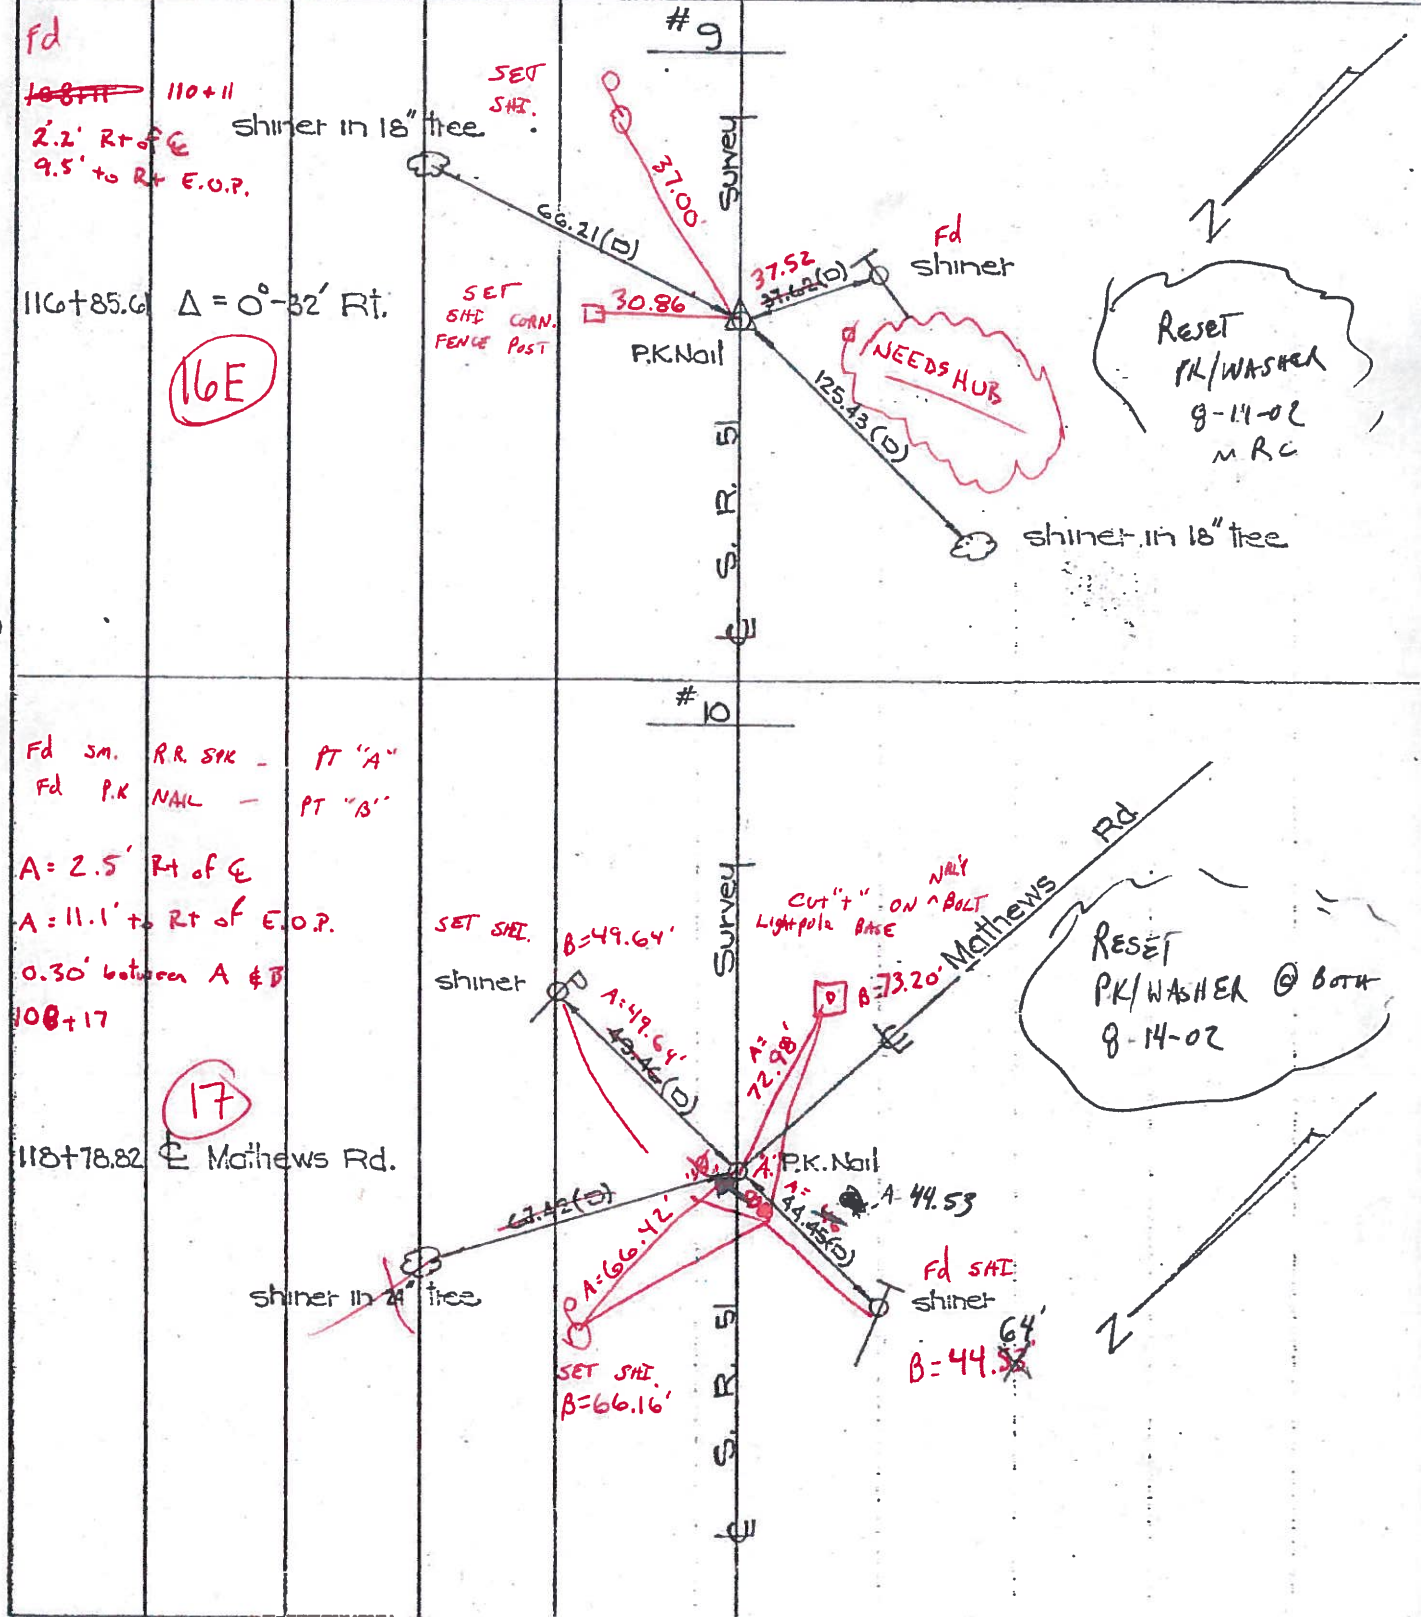 #9
Fd
108+11 110+11
2.2' Rt of ℄
9.5' to Rt E.O.P.
SET
SHI.
shiner in 18" tree
66.21(D)
37.00
Survey
Fd
shiner
37.52
37.62(D)
116+85.61 Δ = 0°-32' Rt.
16E
SET
SHI CORN.
FENCE POST
30.86'
P.K.Nail
NEEDS HUB
125.43(D)
S. R. 51
shiner in 18" tree
℄
N
RESET
PK/WASHER
8-14-02
MRC
#10
Fd sm. R.R. SPK - PT "A"
Fd P.K NAIL - PT "B"
A = 2.5' Rt of ℄
A = 11.1' to Rt of E.O.P.
0.30' between A & B
108+17
17
118+78.82 ℄ Mathews Rd.
SET SHI.
shiner
B=49.64'
A=49.64'
49.46(D)
Survey
Cut "+" ON ^ BOLT
NRLY
Lightpole BASE
B=73.20'
A=
72.98'
℄ Mathews Rd
RESET
PK/WASHER @ BOTH
8-14-02
"A"
P.K.Nail
"B"
A=
A-44.53
44.45(D)
67.42(D)
shiner in 24" tree
A=66.42'
SET SHI.
B=66.16'
Fd SHI
shiner
64'
B=44.53'
S. R. 51
℄
N